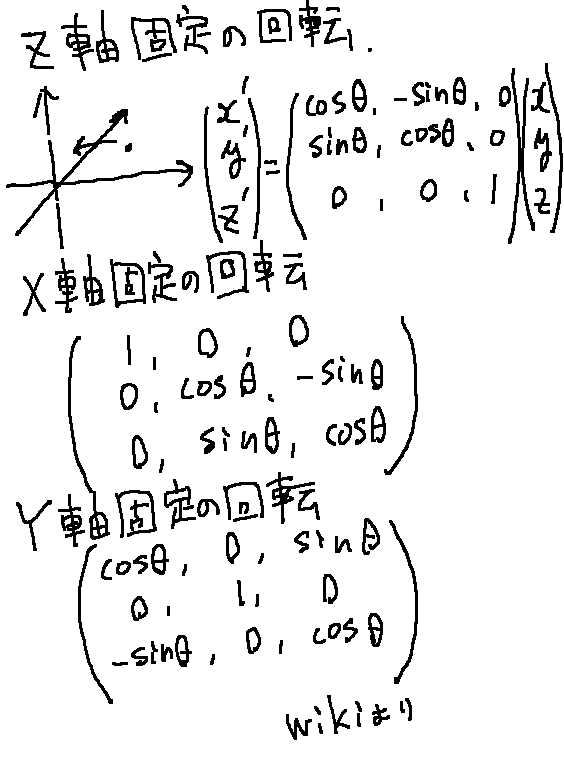 Z軸固定の回転.
(x', y', z') = (cosθ, -sinθ, 0
sinθ, cosθ, 0
0, 0, 1) (x, y, z)
X軸固定の回転
1, 0, 0
0, cosθ, -sinθ
0, sinθ, cosθ
Y軸固定の回転
cosθ, 0, sinθ
0, 1, 0
-sinθ, 0, cosθ
wikiより